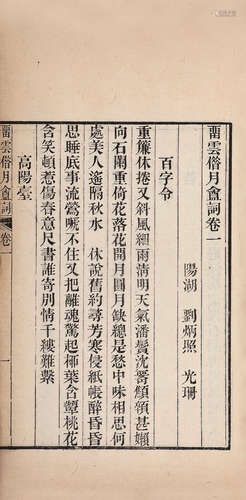 畱雲借月盦詞卷一
陽湖 劉炳照 光珊
百字令
重簾休捲又斜風細雨清明天氣潘鬢沈腰顦顇甚嬾
向石闌重倚花落花開月圓月缺總是愁中味相思何
處美人遙隔秋水 休說舊約尋芳寒侵紙帳醉昏昏
思睡底事流鶯嗁不住又把離魂驚起桺葉含顰桃花
含笑頓惹傷春意尺書誰寄別情千縷難繫
高陽臺
畱雲借月盦詞 卷一 一